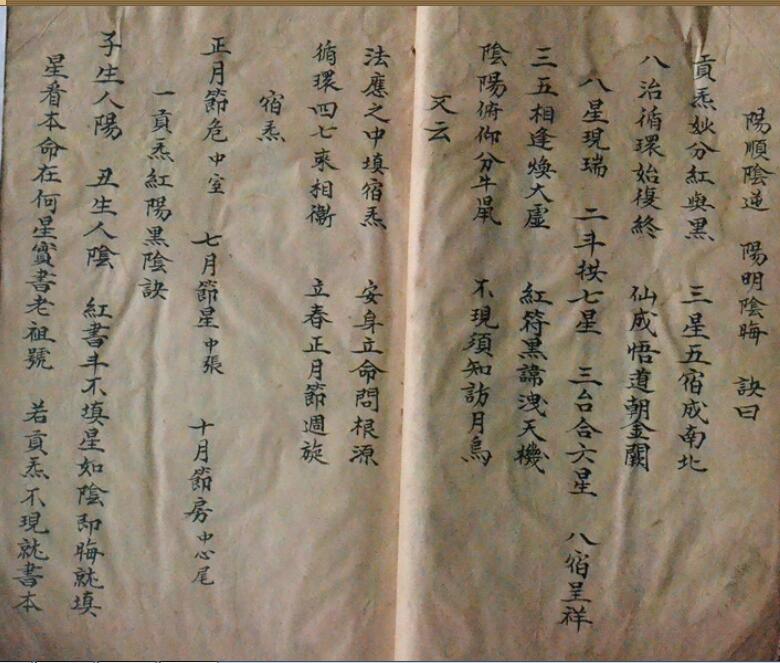 陽順陰逆　陽明陰晦　訣曰
貢炁妙分紅與黑　三星五宿成南北
八治循環始復終　仙成悟道朝金闕
八星現瑞　二斗拱七星　三台合六星　八宿呈祥
三五相逢煥大虛　紅符黑諱洩天機
陰陽俯仰分牛鼠　不現須知訪月烏
又云
法應之中填宿炁　安身立命問根源
循環四七來相衛　立春正月節週旋
宿炁
正月節危中室　七月節星中張　十月節房中心尾
一貢炁紅陽黑陰訣
子生人陽　丑生人陰　紅書斗不填星如陰即晦就填
星看本命在何星實書老祖號　若貢炁不現就書本